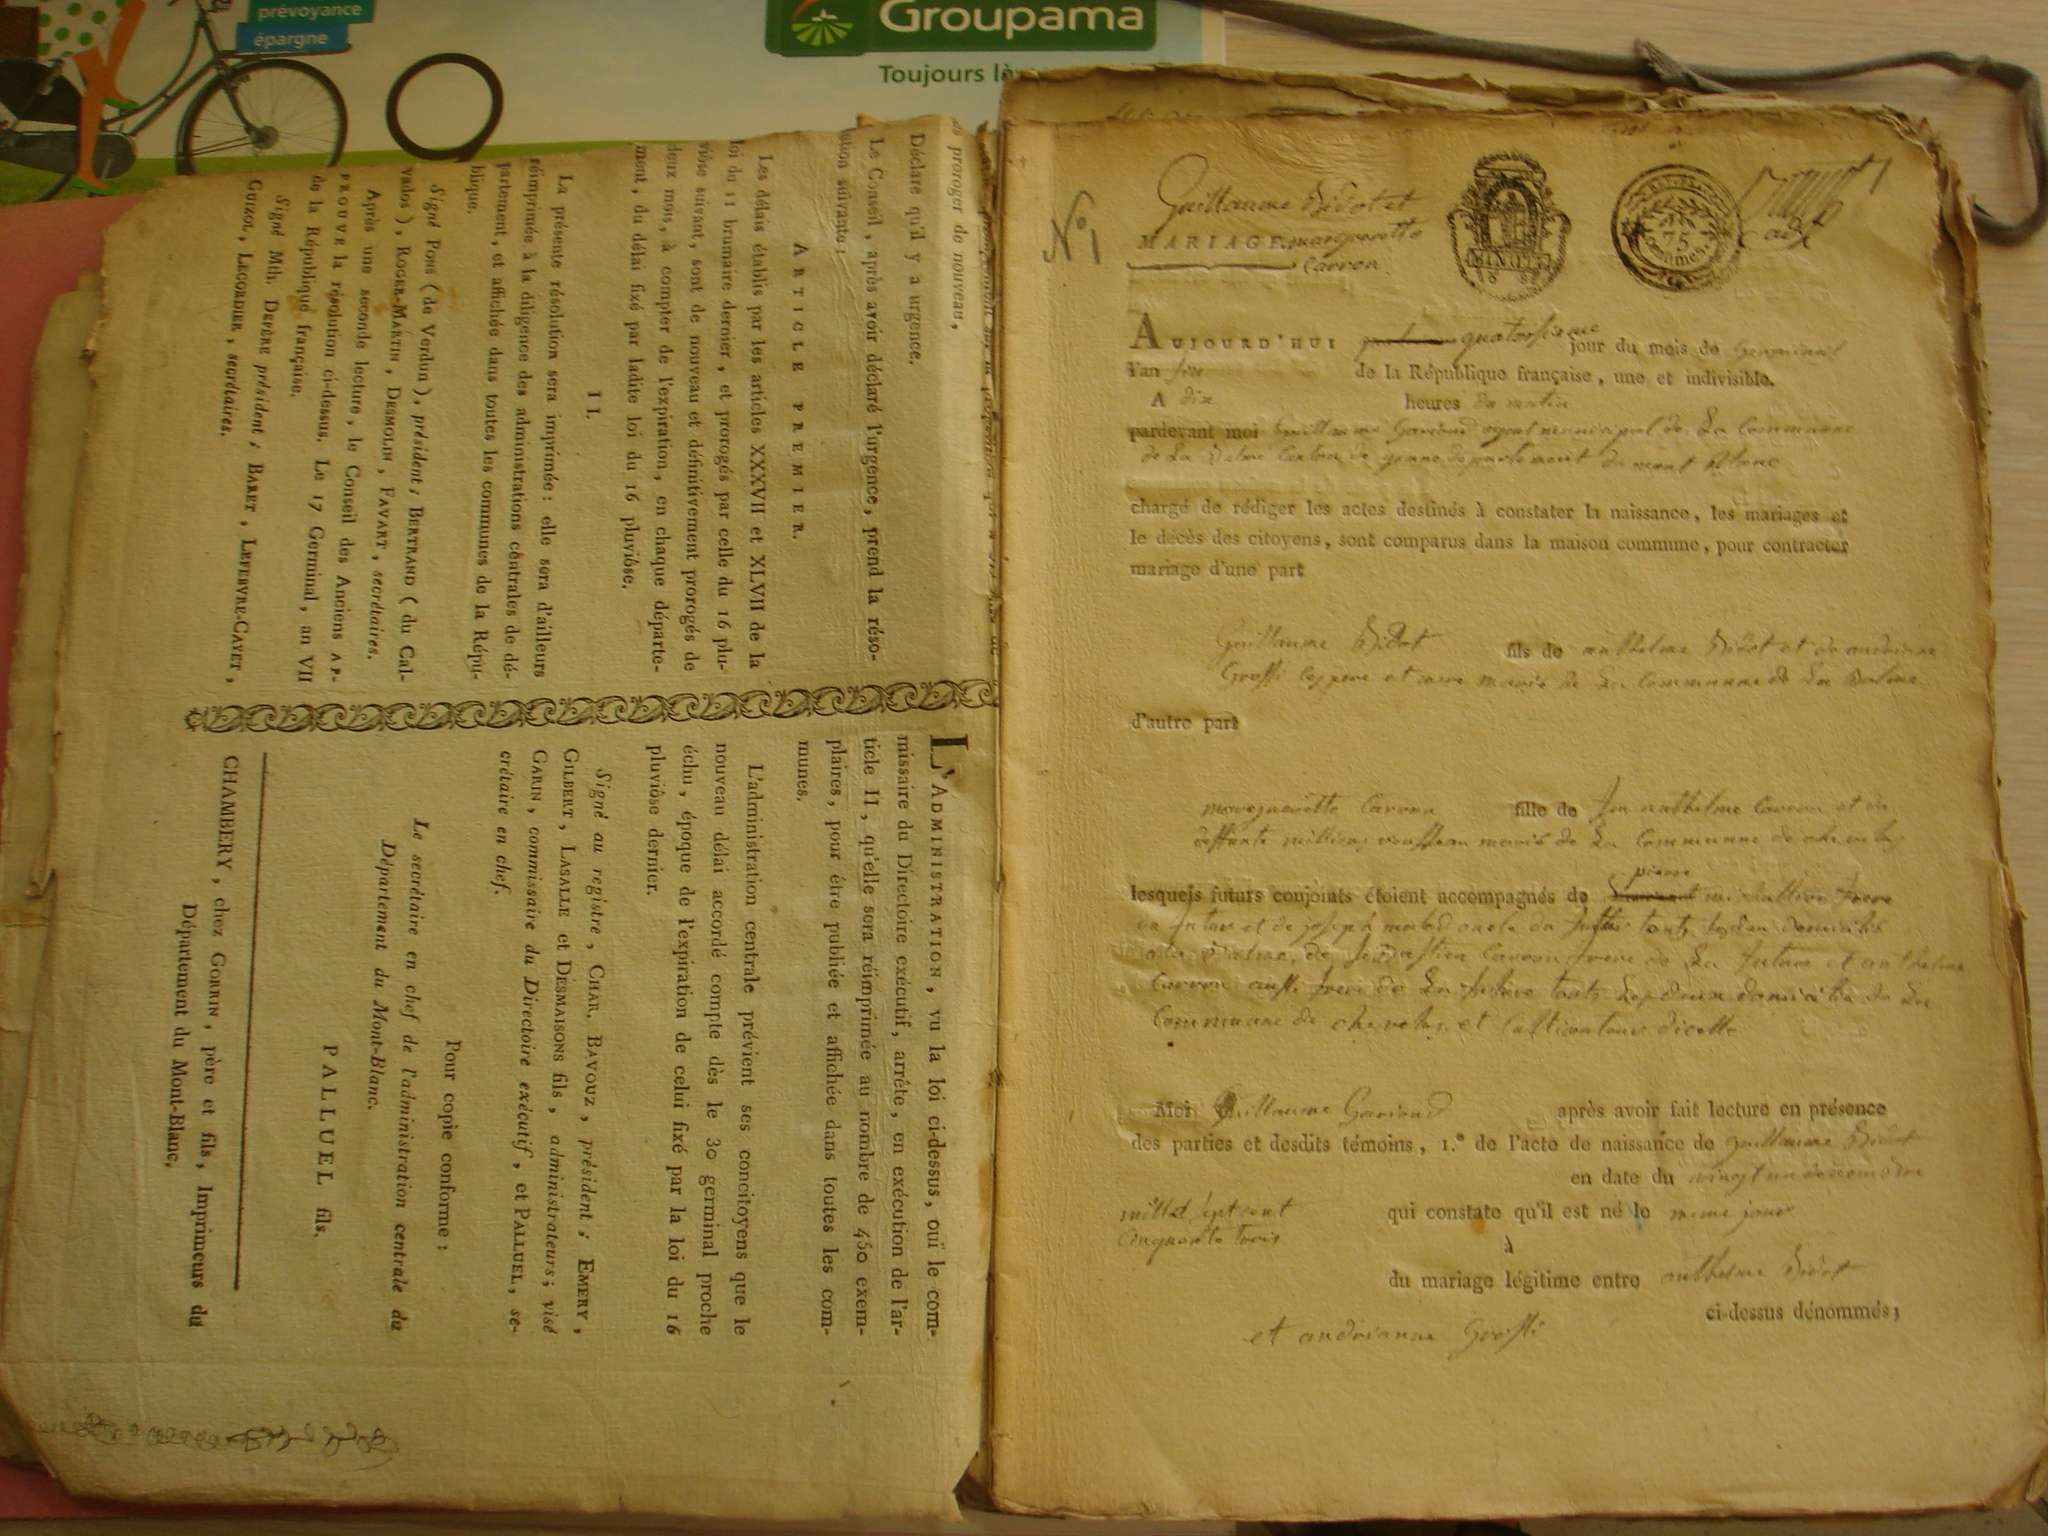 prévoyance
épargne
Groupama
Toujours là
proroger de nouveau,
Déclare qu'il y a urgence.
Le Conseil, après avoir déclaré l'urgence, prend la réso-
lution suivante :
ARTICLE PREMIER.
Les délais établis par les articles XXXVII et XLVII de la
loi du 11 brumaire dernier, et prorogés par celle du 16 plu-
viôse suivant, sont de nouveau et définitivement prorogés de
deux mois, à compter de l'expiration, en chaque départe-
ment, du délai fixé par ladite loi du 16 pluviôse.
II.
La présente résolution sera imprimée : elle sera d'ailleurs
réimprimée à la diligence des administrations centrales de dé-
partement, et affichée dans toutes les communes de la Répu-
blique.
Signé Pons (de Verdun), président ; BERTRAND (du Cal-
vados), ROGER-MARTIN, DESMOLIN, FAVART, secrétaires.
Après une seconde lecture, le Conseil des Anciens AP-
PROUVE la résolution ci-dessus. Le 17 Germinal, an VII
de la République française.
Signé Mth. DEPÈRE président ; BARET, LEFEBVRE-CAYET,
GUIZOL, LECORDIER, secrétaires.
L'ADMINISTRATION, vu la loi ci-dessus, ouï le com-
missaire du Directoire exécutif, arrête, en exécution de l'ar-
ticle II, qu'elle sera réimprimée au nombre de 450 exem-
plaires, pour être publiée et affichée dans toutes les com-
munes.
L'administration centrale prévient ses concitoyens que le
nouveau délai accordé compte dès le 30 germinal proche
échu, époque de l'expiration de celui fixé par la loi du 16
pluviôse dernier.
Signé au registre, CHAR. BAVOUZ, président ; EMERY,
GILBERT, LASALLE et DESMAISONS fils, administrateurs ; visé
GARIN, commissaire du Directoire exécutif, et PALLUEL, se-
crétaire en chef.
Pour copie conforme :
Le secrétaire en chef de l'administration centrale du
Département du Mont-Blanc.
PALLUEL fils.
CHAMBERY, chez GORRIN, père et fils, Imprimeurs du
Département du Mont-Blanc.
No 1
Guillaume Bidot et
MARIAGE margueritte
Carron
75
centimes
AUJOURD'HUI quatorsieme jour du mois de Germinal
l'an de la République française, une et indivisible.
A dix heures du matin
pardevant moi Guillaume Garioud agent municipal de La Commune
de La Balme Canton de yenne departement du mont Blanc
chargé de rédiger les actes destinés à constater la naissance, les mariages et
le décès des citoyens, sont comparus dans la maison commune, pour contracter
mariage d'une part
Guillaume Bidot fils de anthelme Bidot et de andrianne
Grossi pere et mere de La Commune de La Balme
d'autre part
margueritte Carron fille de feu anthelme Carron et de
deffunte de La Commune de
lesquels futurs conjoints étoient accompagnés de pierre
futur et de joseph oncle du futur
de Sebastien Carron frere de La future et anthelme
Carron aussi frere de La future de La
Commune de et Cultivateur dicelle
Moi Guillaume Garioud après avoir fait lecture en présence
des parties et desdits témoins, 1.º de l'acte de naissance de guillaume Bidot
en date du vingt un decembre
mille sept cent qui constate qu'il est né le meme jour
cinquante trois
à
du mariage légitime entre anthelme Bidot
ci-dessus dénommés ;
et andrianne Grossi